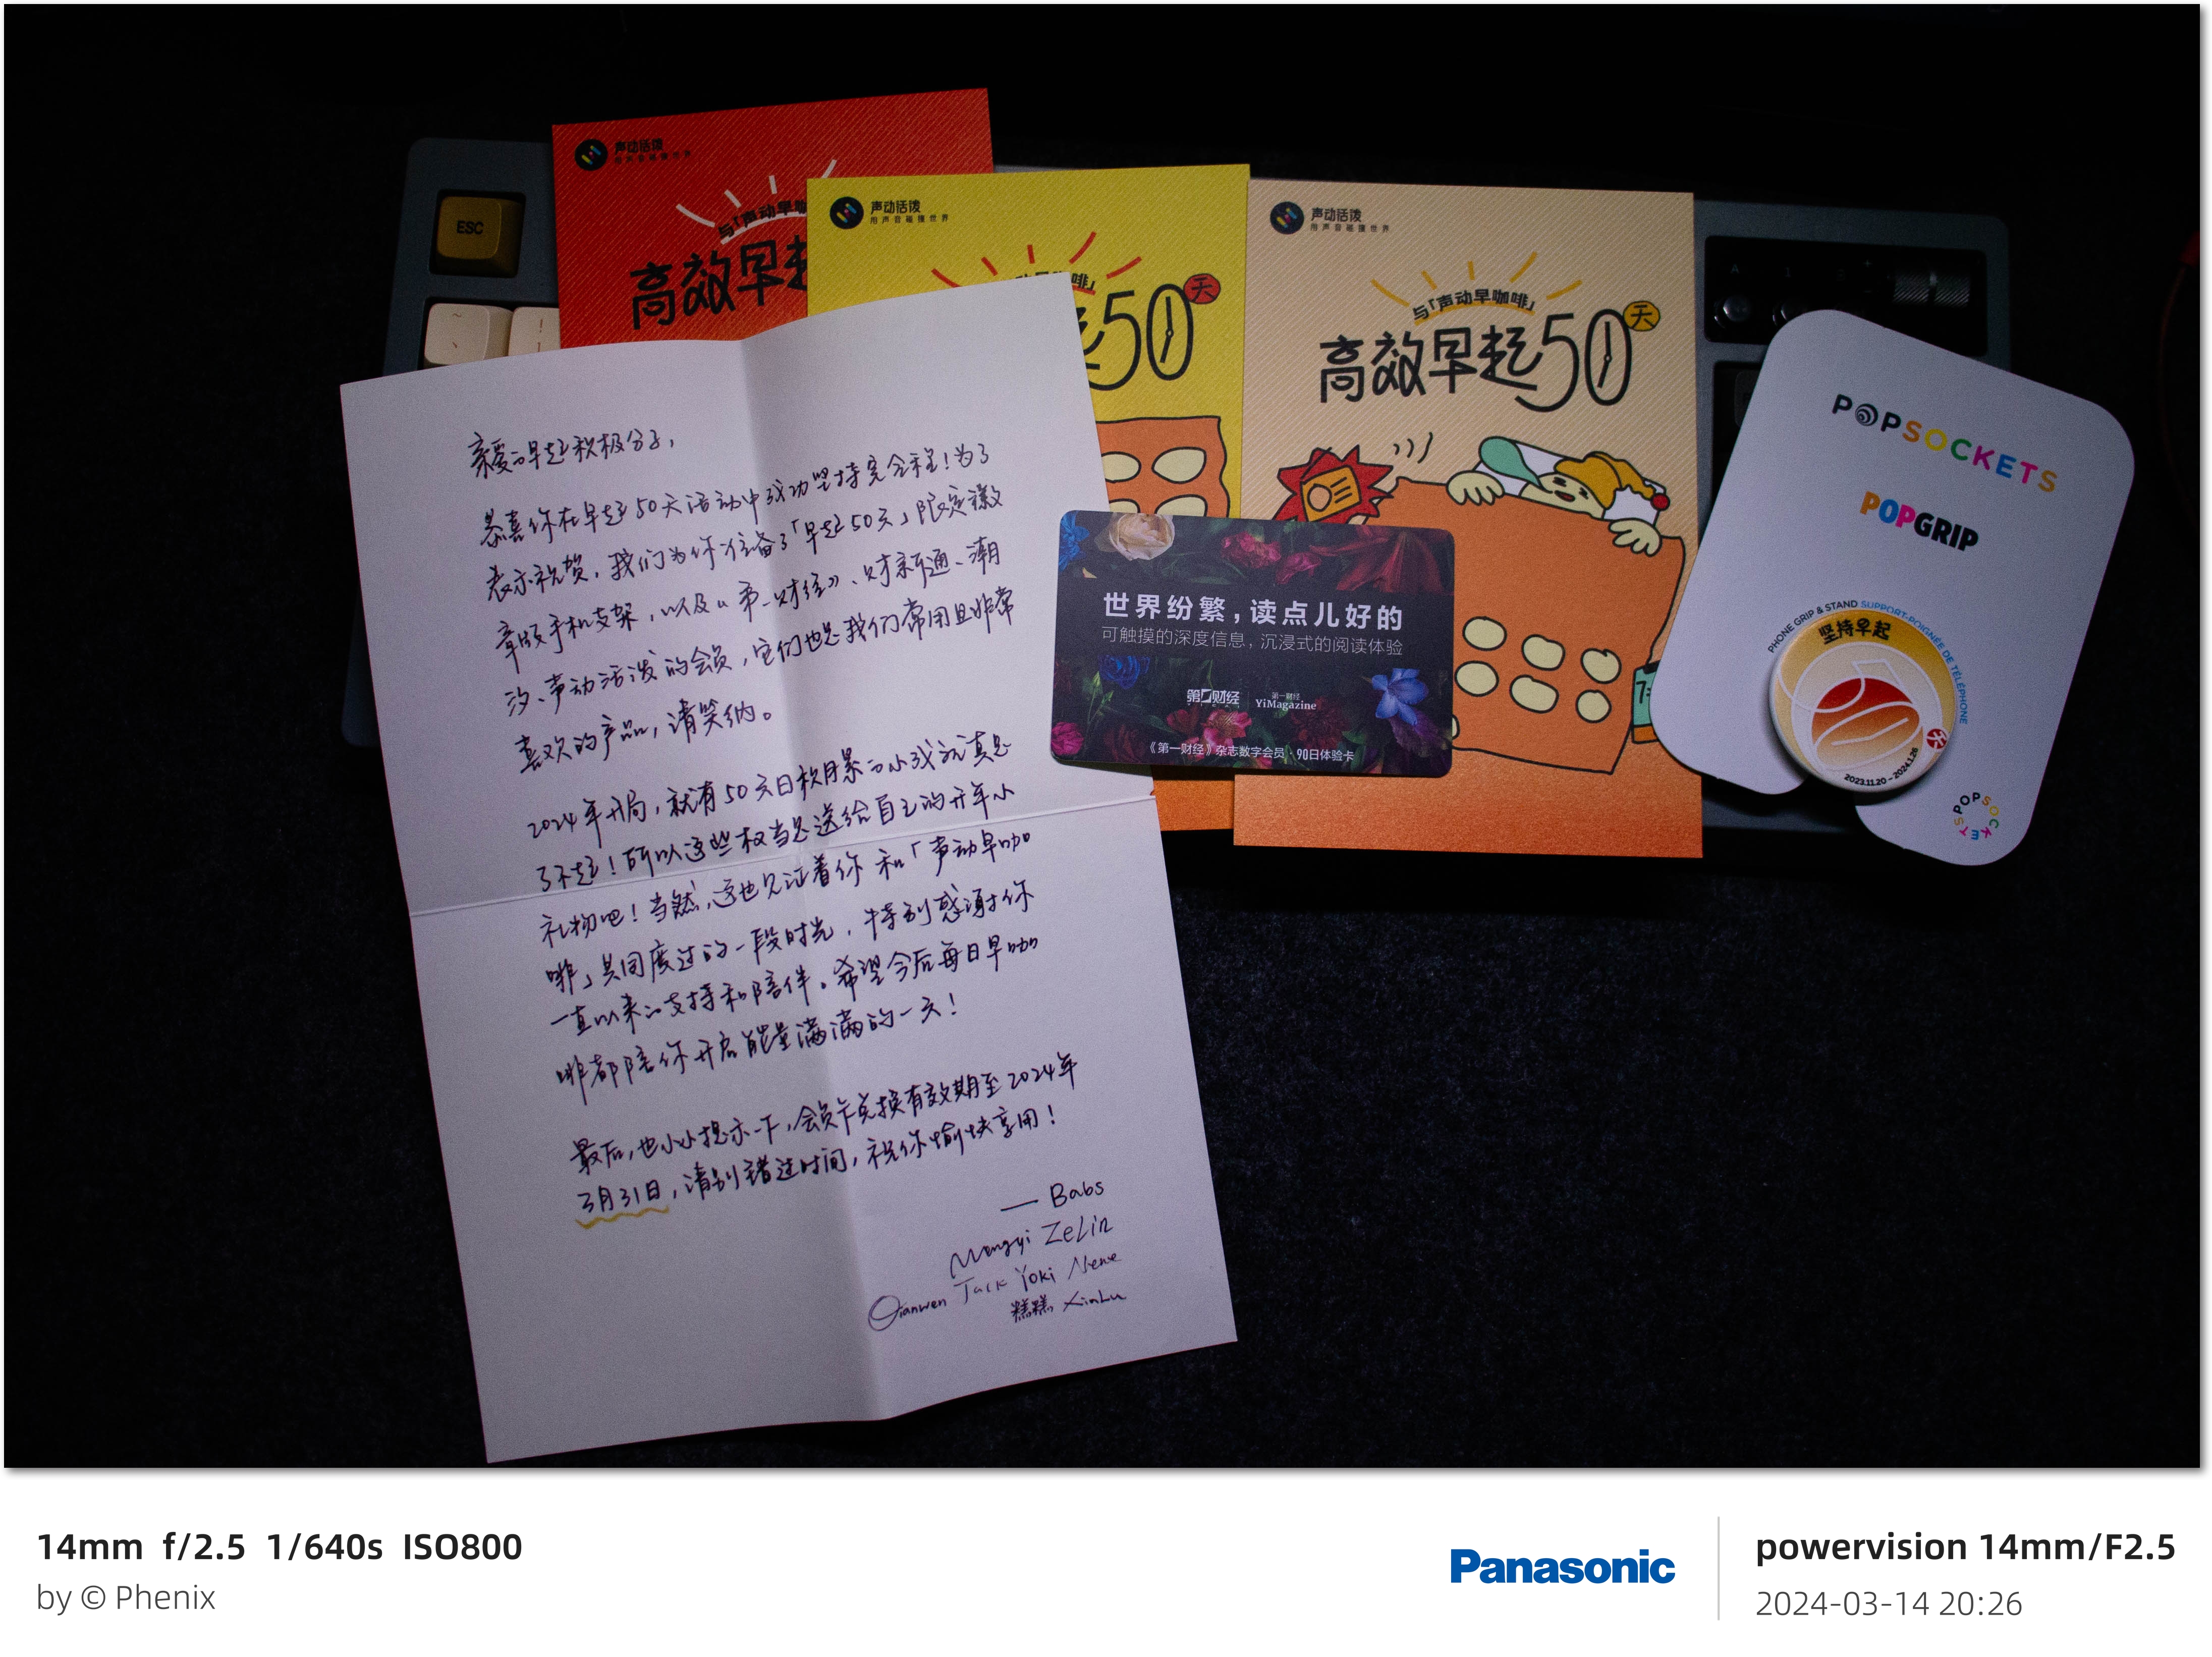 ESC
声动活泼
用声音碰撞世界
与「声动早
高效早起
声动活泼
用声音碰撞世界
啡」
起50天
声动活泼
用声音碰撞世界
与「声动早咖啡」
高效早起50天
亲爱的早起积极分子，
恭喜你在早起50天活动中成功坚持完全程！为了
表示祝贺，我们为你准备了「早起50天」限定徽
章版手机支架，以及《第一财经》、财新通、潮
汐、声动活泼的会员，它们也是我们常用且非常
喜欢的产品，请笑纳。
2024年开局，就有50天日积月累的小成就真是
了不起！所以这些权当是送给自己的开年小
礼物吧！当然，这也见证着你和「声动早咖
啡」共同度过的一段时光，特别感谢你
一直以来的支持和陪伴。希望今后每日早咖
啡都陪你开启能量满满的一天！
最后，也小小提示一下，会员卡兑换有效期至2024年
3月31日，请别错过时间，祝你愉快享用！
— Babs
Mengyi ZeLin
Qianwen Jack Yoki Nene
糕糕 XinLu
世界纷繁，读点儿好的
可触摸的深度信息，沉浸式的阅读体验
第一财经 第一财经 YiMagazine
《第一财经》杂志数字会员·90日体验卡
POPSOCKETS
POPGRIP
PHONE GRIP & STAND SUPPORT-POIGNÉE DE TÉLÉPHONE
坚持早起
天
2023.11.20 - 2024.1.26
POPSOCKETS
14mm f/2.5 1/640s ISO800
by © Phenix
Panasonic
powervision 14mm/F2.5
2024-03-14 20:26